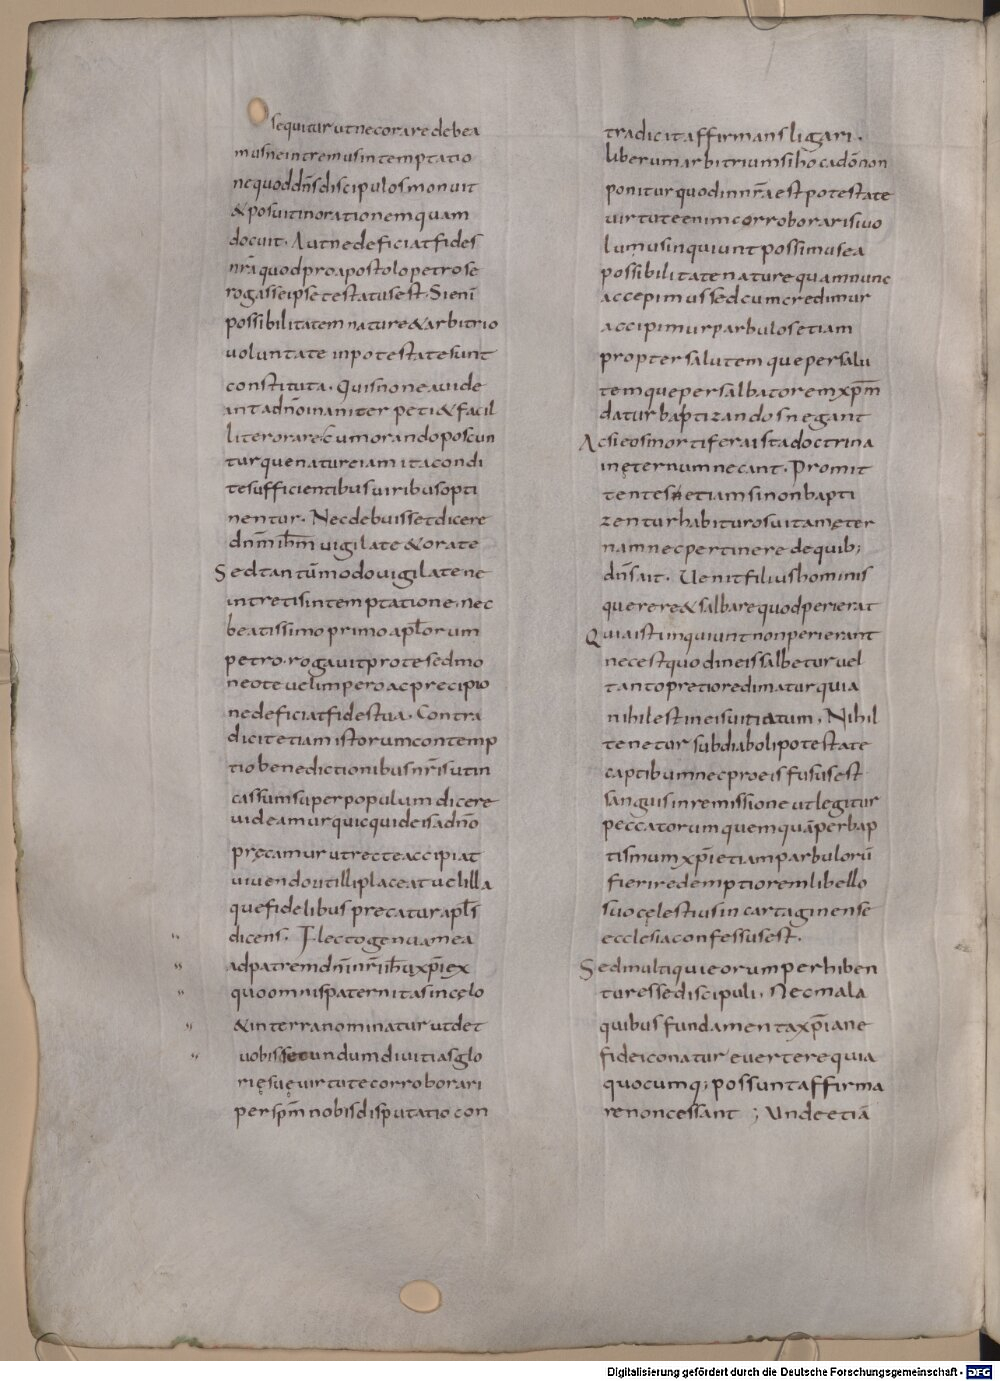 sequitur ut nec orare debea
mus ne intremus in temptatio
ne quod dn̄s discipulos monuit
& posuit in orationem quam
docuit. Aut ne deficiat fides
nr̄a quod pro apostolo petro se
rogasse ipse testatus est. Si enī
possibilitatem nature & arbitrio
uoluntate in potestate sunt
constituta. Quis non ea uide
ant a dn̄o inaniter peti & facil
liter orare cum orando poscun
tur que nature iam ita condi
te sufficientibus uiribus opti
nentur. Nec debuisset dicere
dn̄m ih̄m uigilate & orate
Sed tantūmodo uigilate ne
intretis in temptatione. nec
beatissimo primo apl̄orum
petro. rogauit pro te sed mo
neo te uel impero ac precipio
ne deficiat fides tua. Contra
dicit etiam istorum contemp
tio benedictionibus nr̄is ut in
cassum super populum dicere
uideamur quicquid eis a dn̄o
pręcamur ut recte accipiat
uiuendo ut illi placeat uel illa
que fidelibus precatur apl̄s
dicens. Flecto genua mea
ad patrem dn̄i nr̄i ih̄u xp̄i ex
quo omnis paternitas in cęlo
& in terra nominatur ut det
uobis secundum diuitias glo
rię suę uirtute corroborari
per sp̄m nobis disputatio con
tradicit affirmans ligari.
liberum arbitrium si hoc a dō non
ponitur quod in nr̄a est potestate
uirtute enim corroborari si uo
lumus inquiunt possimus ea
possibilitate nature quam nunc
accepimus sed cum credimur
accipimur parbulos etiam
propter salutem que per salu
tem que per salbatorem xp̄m
datur baptizandos negant
Ac si eos mortifera ista doctrina
in ęternum necant. Promit
tentes etiam si non bapti
zentur habituros uitam ęter
nam nec pertinere de quib;
dn̄s ait. Uenit filius hominis
querere & salbare quod perierat
Quia isti inquiunt non perierant
nec est quod in eis salbetur uel
tanto pretio redimatur quia
nihil est in eis uitiatum. Nihil
tenetur sub diaboli potestate
captibum nec pro eis fusus est
sanguis in remissione ut legitur
peccatorum quemquā per bap
tismum xp̄i etiam parbulorū
fieri redemptiorem libello
suo cęlestius in cartaginense
ecclesia confessus est.
Sed multi qui eorum perhiben
tur esse discipuli. Nec mala
quibus fundamenta xp̄iane
fidei conatur euertere quia
quocumq; possunt affirma
re non cessant ; Unde etiā
Digitalisierung gefördert durch die Deutsche Forschungsgemeinschaft - DFG